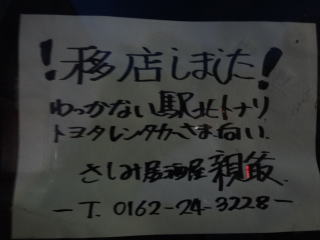 ！移店しました！
わっかない駅北トナリ
トヨタレンタカーさま向い.
さしみ居酒屋 親飯.
－T. 0162-24-3228－